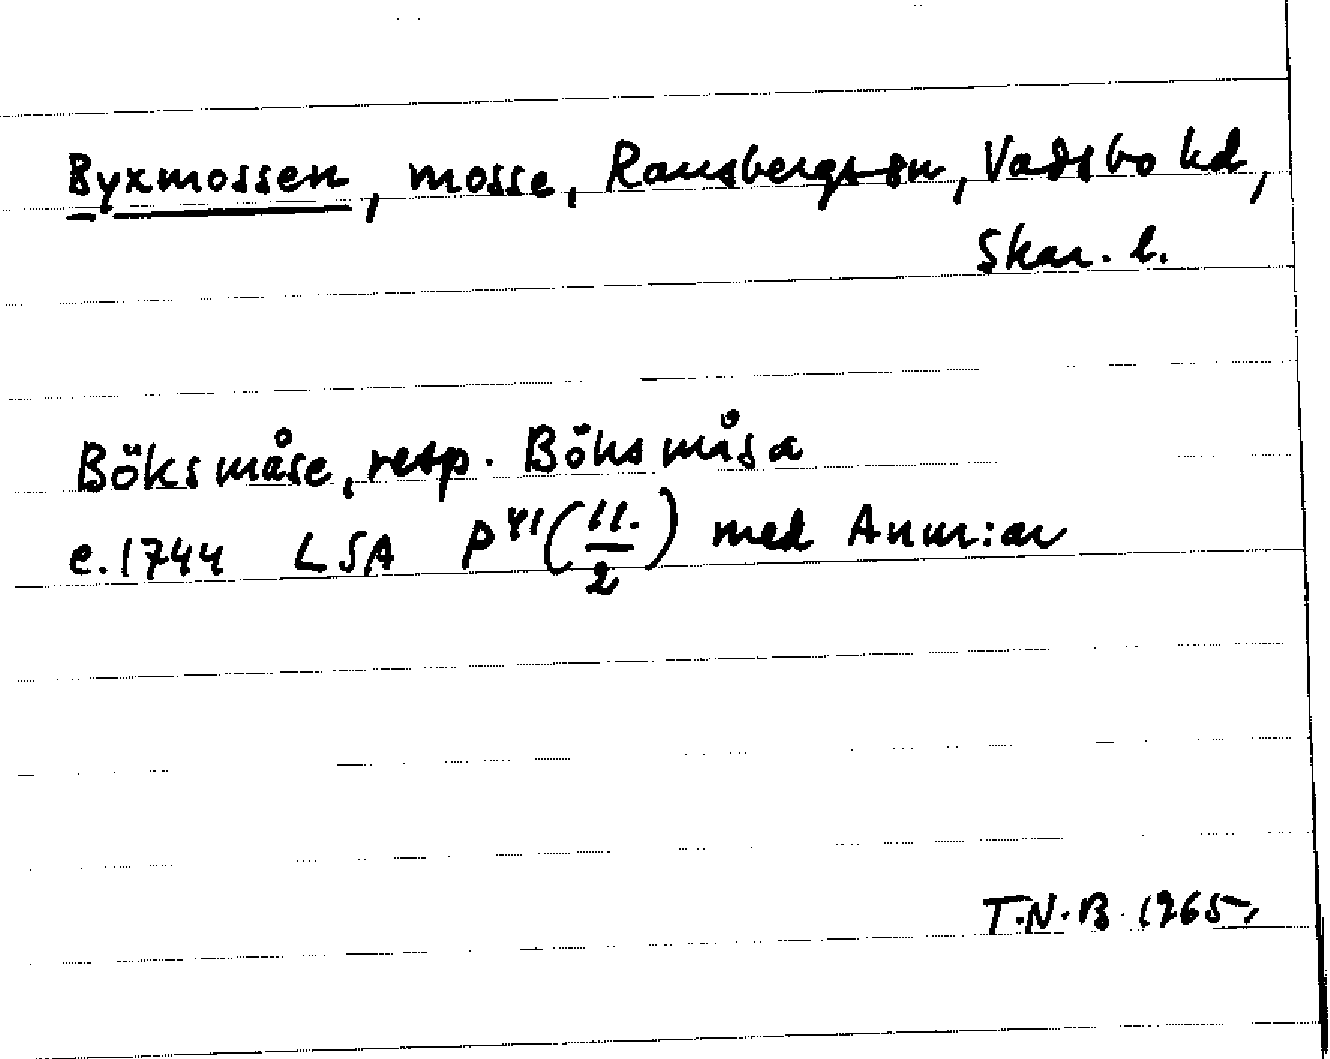 Byxmossen, mosse, Ransbergs sn, Vadsbo hd,
Skar. l.
Böksmåse, resp. Böksmåsa
e. 1744 LSA P VI (11./2) med Anm:ar
T.N.B. 1965